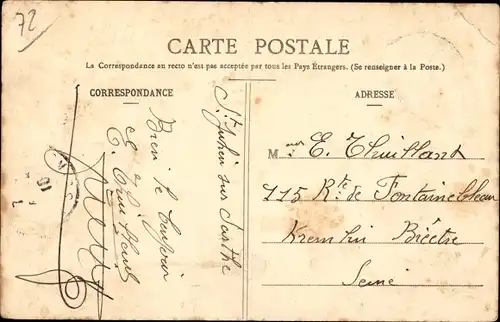 72
CARTE POSTALE
La Correspondance au recto n'est pas acceptée par tous les Pays Étrangers. (Se renseigner à la Poste.)
CORRESPONDANCE
St Julien sur Sarthe
Bien le bonjour
E. Thuillant
ADRESSE
Mr E. Thuillant
115 Rte de Fontainebleau
Kremlin Bicètre
Seine